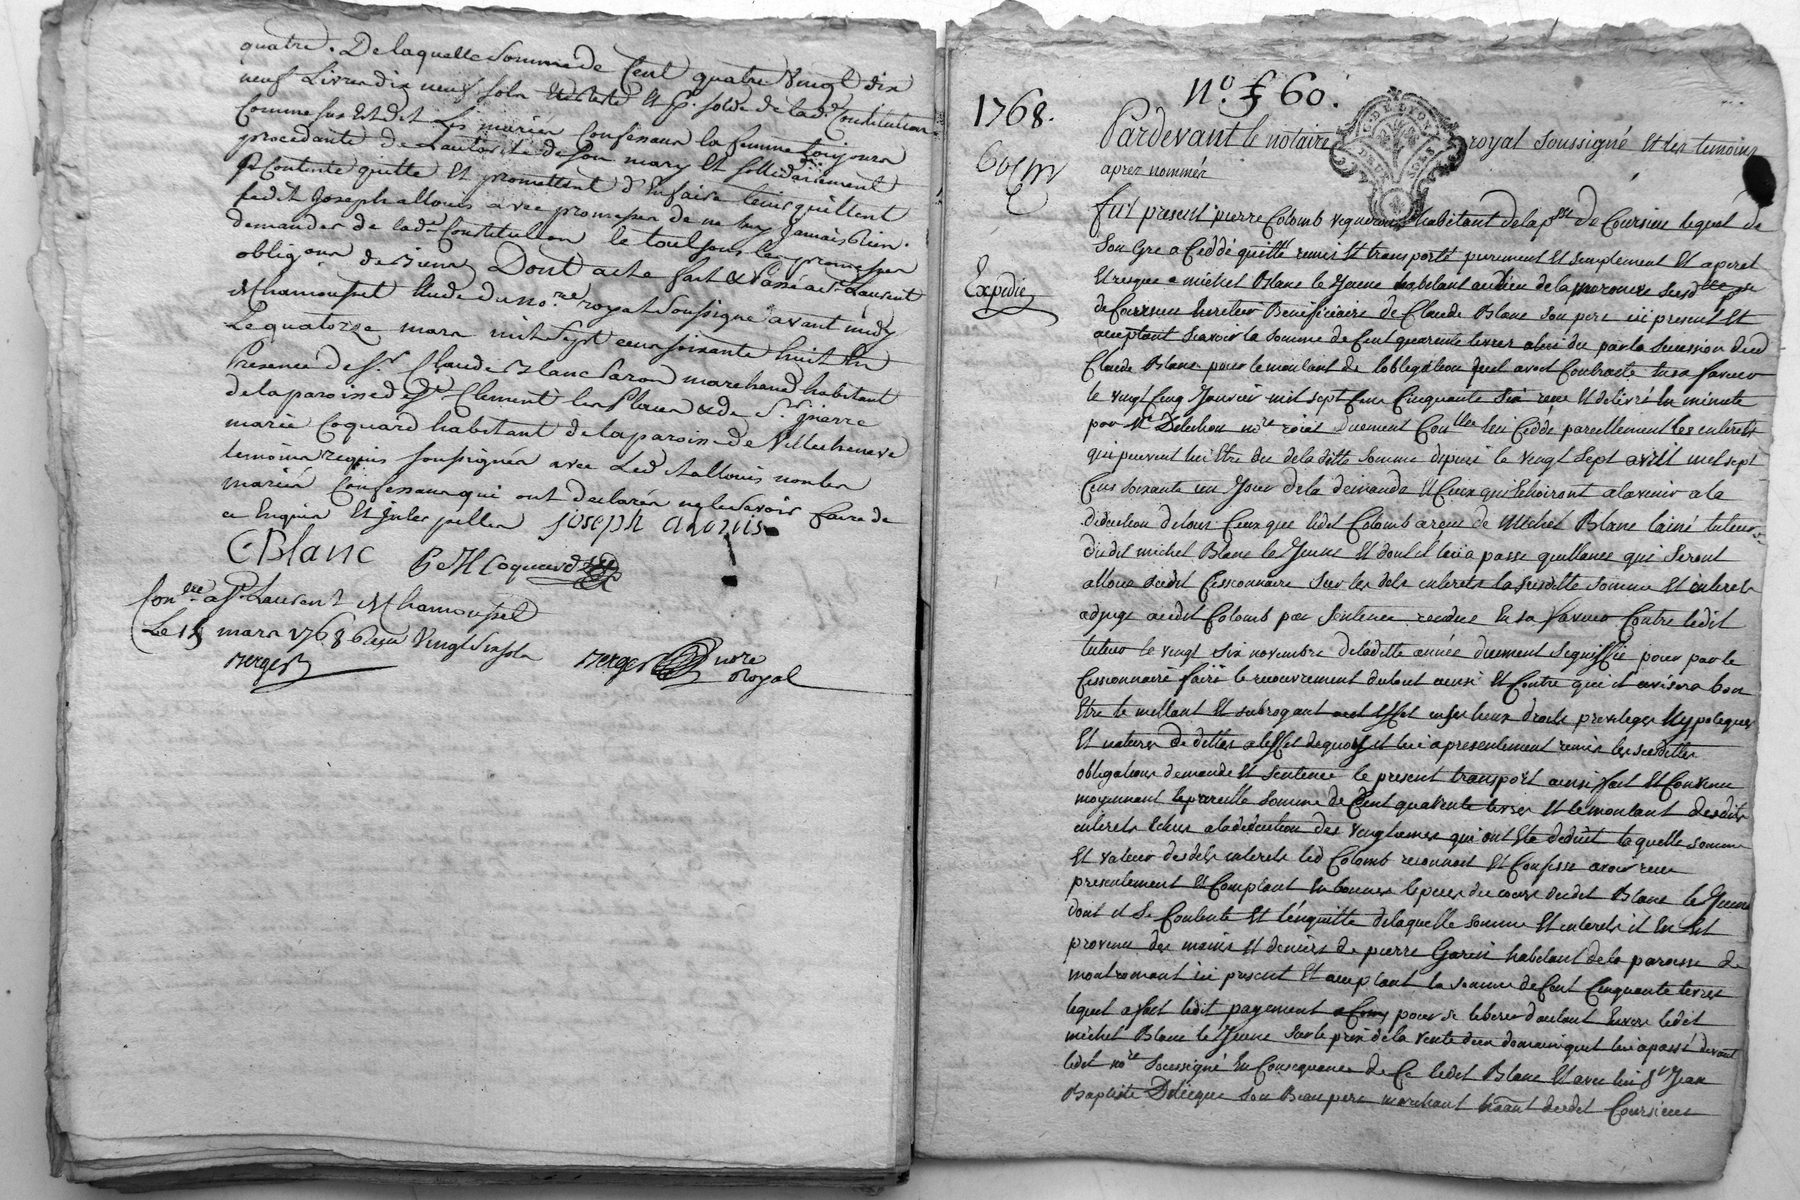 quatre. De laquelle Somme de Cent quatre Vingt dix
neuf Livres dix neuf sols Et solde de lad. Constitution
Comme sus Est dit Les mariés Confessans la femme toujours
procedante de L'autorité de son mary Et sollidairement
Contents quitte Et promettent d'En faire tenir quitte
ledit Joseph allouis avec promesses de ne luy jamais Rien
demander de lad. Constitution le tout sous les promesses
obligons de Biens Dont acte fait & Passé a St. Laurent
de Chamousset Etude du no.re royal Soussigné avant midy
Le quatorze mars mil Sept cens soixante huit En
Presence de Sr. Claude Blanc marchand habitant
de la paroisse de St. Clement les places & de Sr. pierre
marie Coquard habitant de la paroisse de Villecheneve
temoins requis soussignés avec Led. allouis non les
mariés Confessans qui ont declarés ne le savoir faire de
ce Enquis Et Interpellés joseph alouis
CBlanc P M Coquard
Con.lée a St. Laurent de Chamousset
Le 15 mars 1768 Reçu Vingt Six sols
Berger Berger no.re
Royal
N.o 60.
1768.
Pardevant le notaire royal soussigné Et les temoins
apres nommés
fut present pierre Colomb vigneron habitant de la p.sse de Coursieu lequel de
Son Gré a Ceddé quitté remis Et transporté purement Et simplement Et aperil
Expedié
Et risque a michel Blanc le Jeune habitant au lieu de la susd. p.sse
de Coursieu heritier Beneficiaire de Claude Blanc Son pere ici present Et
acceptant scavoir la somme de Cent quarente livres a lui du par la sucession dud
Claude Blanc pour le montant de l'obligation quil avoit Contracté en sa faveur
le vingt Cinq Janvier mil sept Cens Cinquante Six recue Et delivré En minute
par Me. Delechou no.re roial duement Con.llée lui Cedde pareillement les interets
qui peuvent lui Etre du de la ditte somme depuis le vingt sept avril mil sept
Cens soixante un Jour de la demande Et Ceux qui Echoiront a lavenir a la
deduction de tous Ceux que ledit Colomb a recu de michel Blanc lainé tuteur
dudit michel Blanc le Jeune Et dont il lui a passé quittance qui seront
alloué audit Cessionnaire sur les dits interets la susditte somme Et interets
adjugé audit Colomb par Sentence rendue En sa faveur Contre ledit
tuteur le vingt Six novembre de ladite année duement signiffié pour par le
Cessionnaire faire le recouvrement du tout ainsi Et Contre qui il avisera bon
Etre le mettant Et subrogant a cet Effet en ses lieux droits privileges Hypoteques
Et nature de dettes a leffet de quoy il lui a presentement remis les susdittes
obligations demande Et sentence le present transport ainsi fait Et Convenu
moyennant la pareille Somme de Cent quarente livres Et le montant desdits
interets Echus a la deduction des vingtiemes qui ont Eté deduit laquelle somme
Et valeur desdits interets led Colomb reconnoit Et Confesse avoir recu
presentement Et Comptant En bonnes Especes du cours dudit Blanc le Jeune
dont il Se Contente Et l'en quitte de laquelle somme Et interets il En Est
provenu des mains Et deniers de pierre Garin habitant de la paroisse de
montromant ici present Et acceptant la somme de Cent Cinquante livres
lequel a fait ledit payement pour se liberer dautant Envers ledit
michel Blanc le Jeune sur le prix de la vente d'un domaine quil lui a passé devant
ledit no.re Soussigné En Consequence de Ce ledit Blanc Et avec lui Sr Jean
Baptiste Son Beau pere marchand dudit Coursieu